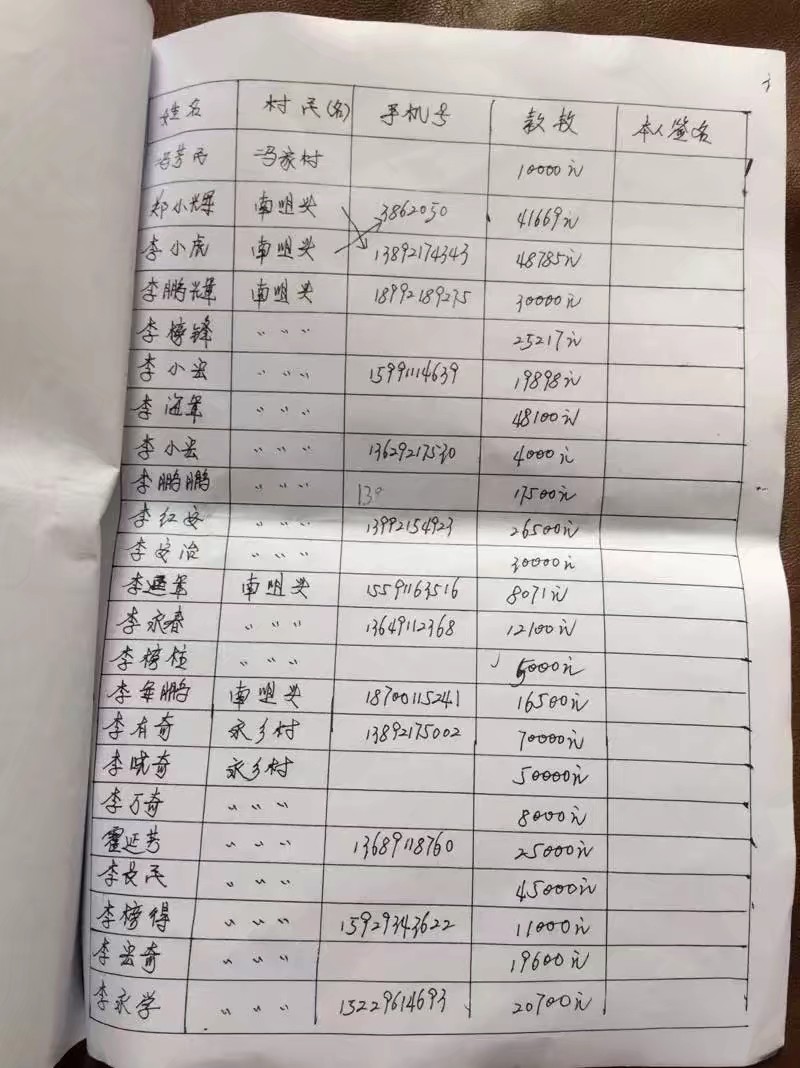 姓名 村民(名) 手机号 款数 本人签名
冯芳氏 冯家村 10000元
郑小辉 南咀头 3862050 41669元
李小虎 南咀头 13892174343 48785元
李鹏辉 南咀头 18992189275 30000元
李榜锋 〃 〃 〃 25217元
李小宏 〃 〃 〃 15991114639 19898元
李海军 〃 〃 〃 48100元
李小宏 〃 〃 〃 13629217530 4000元
李鹏鹏 〃 〃 〃 139 17500元
李红安 〃 〃 〃 13992154923 26500元
李安治 〃 〃 〃 30000元
李通军 南咀头 15591163516 8071元
李永春 〃 〃 〃 13649112368 12100元
李榜柱 〃 〃 〃 5000元
李军鹏 南咀头 18700115241 16500元
李有奇 永乡村 13892175002 70000元
李晓奇 永乡村 50000元
李万奇 〃 〃 〃 8000元
霍延芳 〃 〃 〃 13689118760 25000元
李长民 〃 〃 〃 45000元
李榜得 〃 〃 〃 15929343622 11000元
李宏奇 〃 〃 〃 19600元
李永学 〃 〃 〃 15229614693 20700元